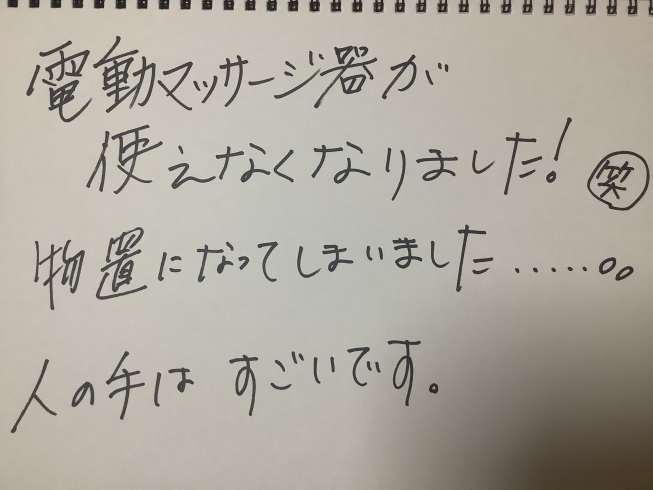 電動マッサージ器が
使えなくなりました! 笑
物置になってしまいました.....。。
人の手は すごいです。